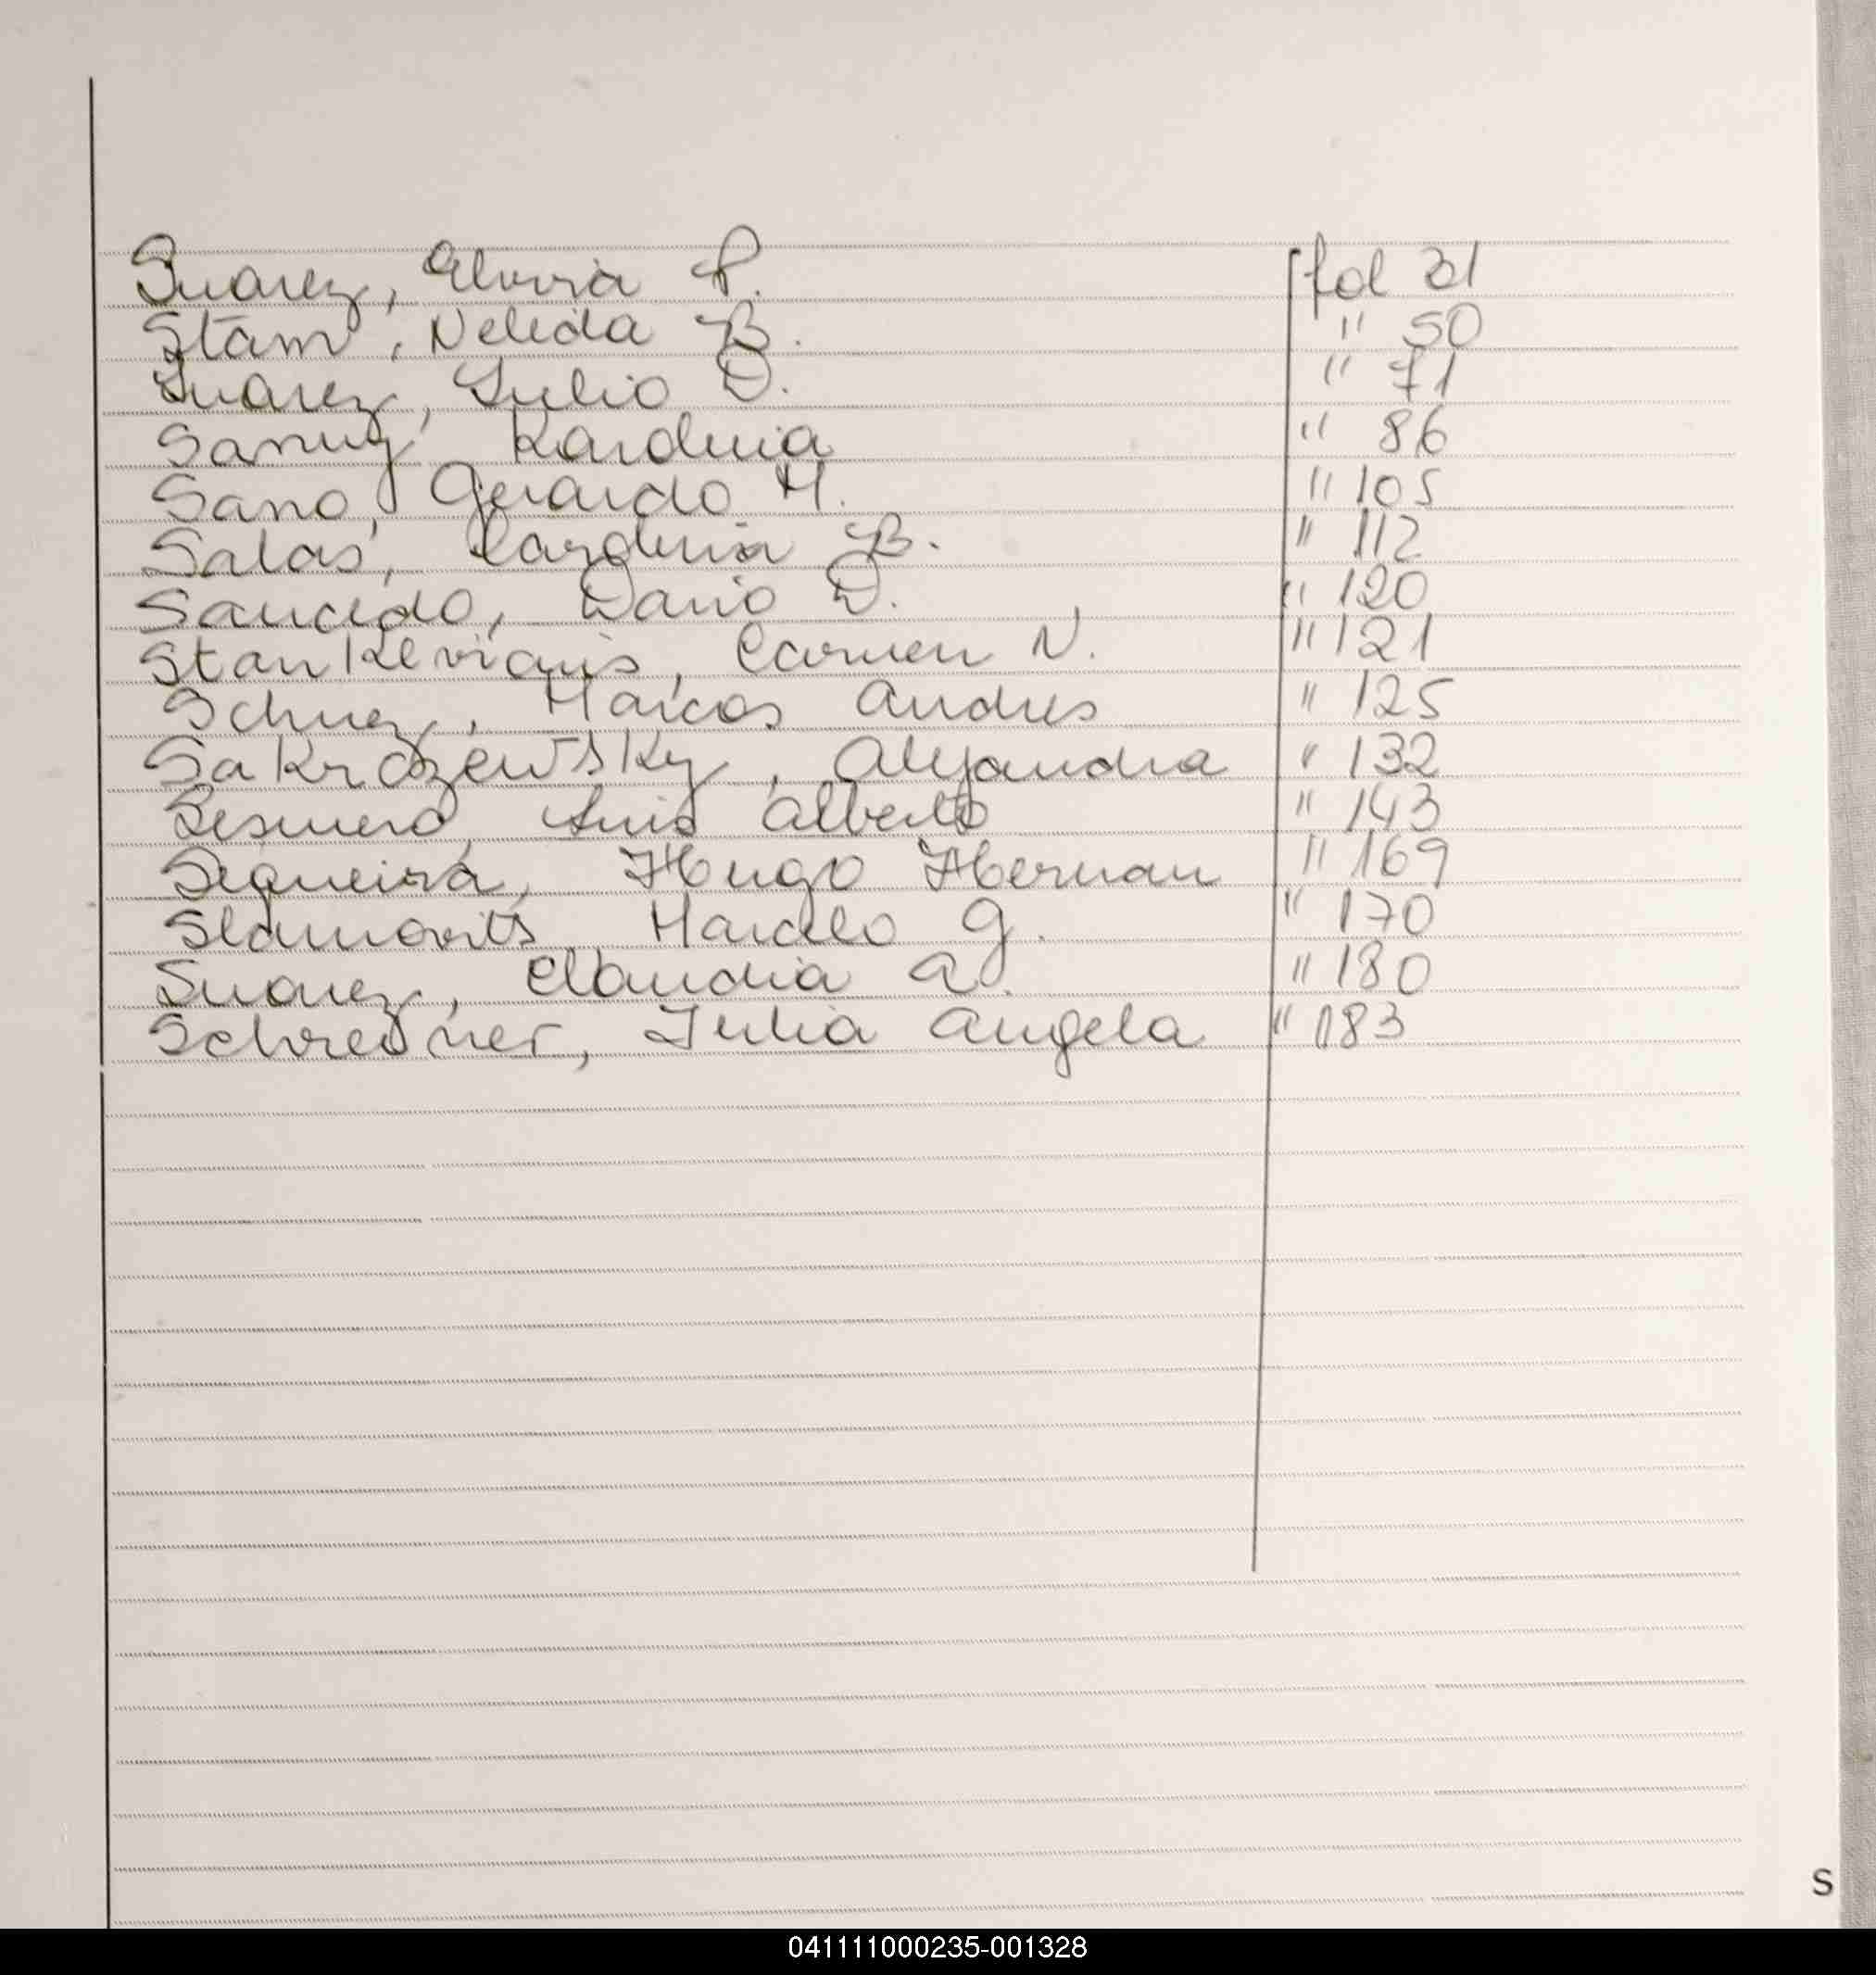 Suarez, Elvira P. fol 31
Stam, Nelida B. " 50
Suarez, Julio D. " 71
Samuy Karolina " 86
Sano, Gerardo M. " 105
Salas, Carolina B. " 112
Saucedo, Dario D. " 120
Stankeviaus, Carmen N. " 121
Schuez, Marcos Andres " 125
Sakrozewsky, Alejandra " 132
Sesmero, Luis Alberto " 143
Sequeira, Hugo Hernan " 169
Slamovits, Marcelo G. " 170
Suarez, Claudia A. " 180
Schreiner, Julia Angela " 183
S
041111000235-001328